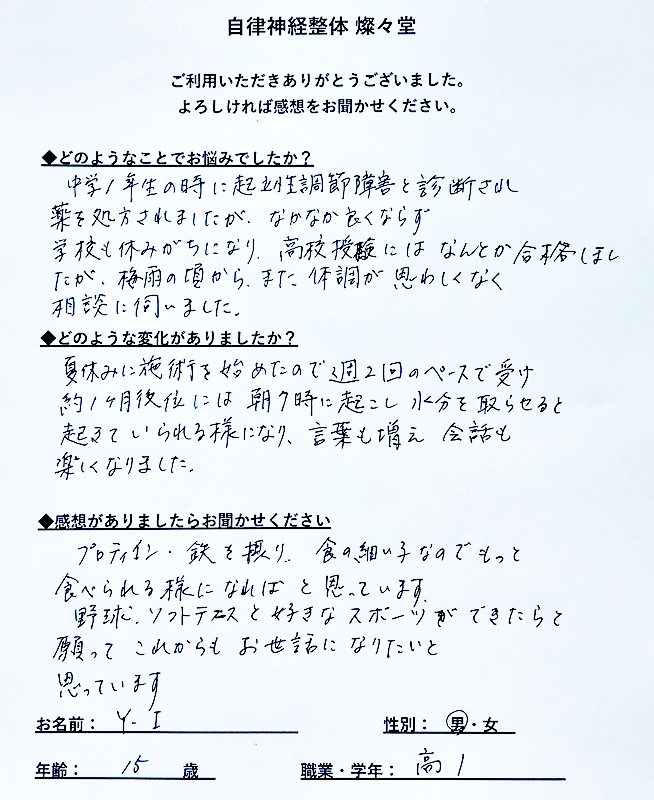 自律神経整体 燦々堂
ご利用いただきありがとうございました。
よろしければ感想をお聞かせください。
◆どのようなことでお悩みでしたか？
中学1年生の時に起立性調節障害と診断され
薬を処方されましたが、なかなか良くならず
学校も休みがちになり、高校授験にはなんとか合格しまし
たが、梅雨の頃から、また体調が思わしくなく
相談に伺いました。
◆どのような変化がありましたか？
夏休みに施術を始めたので週2回のペースで受け
約1ヶ月後位には朝7時に起こし水分を取らせると
起きていられる様になり、言葉も増え会話も
楽しくなりました。
◆感想がありましたらお聞かせください
プロティイン・鉄を摂り、食の細い子なのでもっと
食べられる様になればと思っています。
野球、ソフトテニスと好きなスポーツができたらと
願ってこれからもお世話になりたいと
思っています
お名前： Y-I 性別： 男・女
年齢： 15 歳 職業・学年： 高1